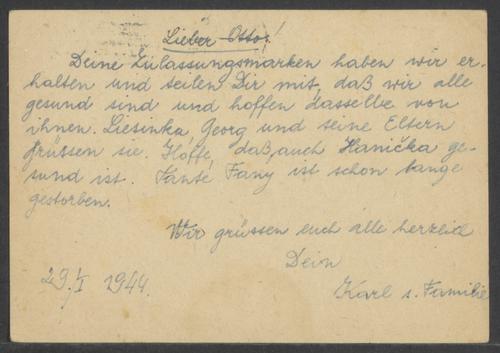 Lieber Otto!
Deine Zulassungsmarken haben wir er-
halten und teilen Dir mit, daß wir alle
gesund sind und hoffen dasselbe von
ihnen. Liesinka, Georg und seine Eltern
grüssen sie. Hoffe, daß auch Hanička ge-
sund ist. Tante Fany ist schon lange
gestorben.
Wir grüssen euch alle herzlich
Dein
29./I 1944. Karl s. Familie